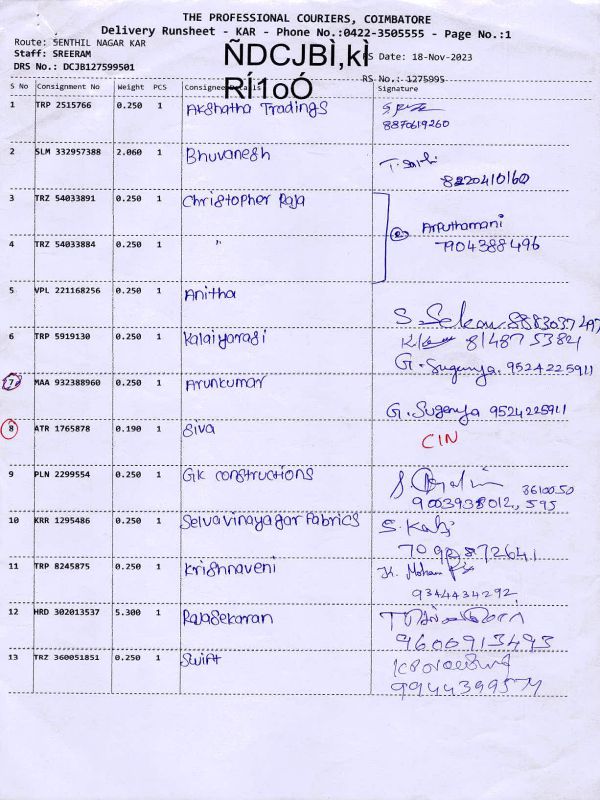 THE PROFESSIONAL COURIERS, COIMBATORE
Delivery Runsheet - KAR - Phone No.:0422-3505555 - Page No.:1
Route: SENTHIL NAGAR KAR
Staff: SREERAM
DRS No.: DCJB127599501
ÑDCJBÌ,kÌ
RÍ1oÓ
RS Date: 18-Nov-2023
RS No.: 1275995
S No Consignment No Weight PCS Consignee Details Signature
1 TRP 2515766 0.250 1 Akshatha Tradings
8870619260
2 SLM 332957388 2.060 1 Bhuvanesh
8220410160
3 TRZ 54033891 0.250 1 Christopher Raja
Arputhamani
7904388496
4 TRZ 54033884 0.250 1 "
5 VPL 221168256 0.250 1 Anitha
S. Sekar 8883037497
6 TRP 5919130 0.250 1 Kalaiyarasi
8148753821
G. Suganya. 9524225911
7 MAA 932388960 0.250 1 Arunkumar
G. Suganya 9524225911
8 ATR 1765878 0.190 1 Siva CIN
9 PLN 2299554 0.250 1 GK constructions
3610050
9003938012, 595
10 KRR 1295486 0.250 1 Selvavinayagar Fabrics
11 TRP 8245875 0.250 1 Krishnaveni K. Mohan
9344434292
12 HRD 302013537 5.300 1 Rajasekaran
9600913493
13 TRZ 360051851 0.250 1 Swift